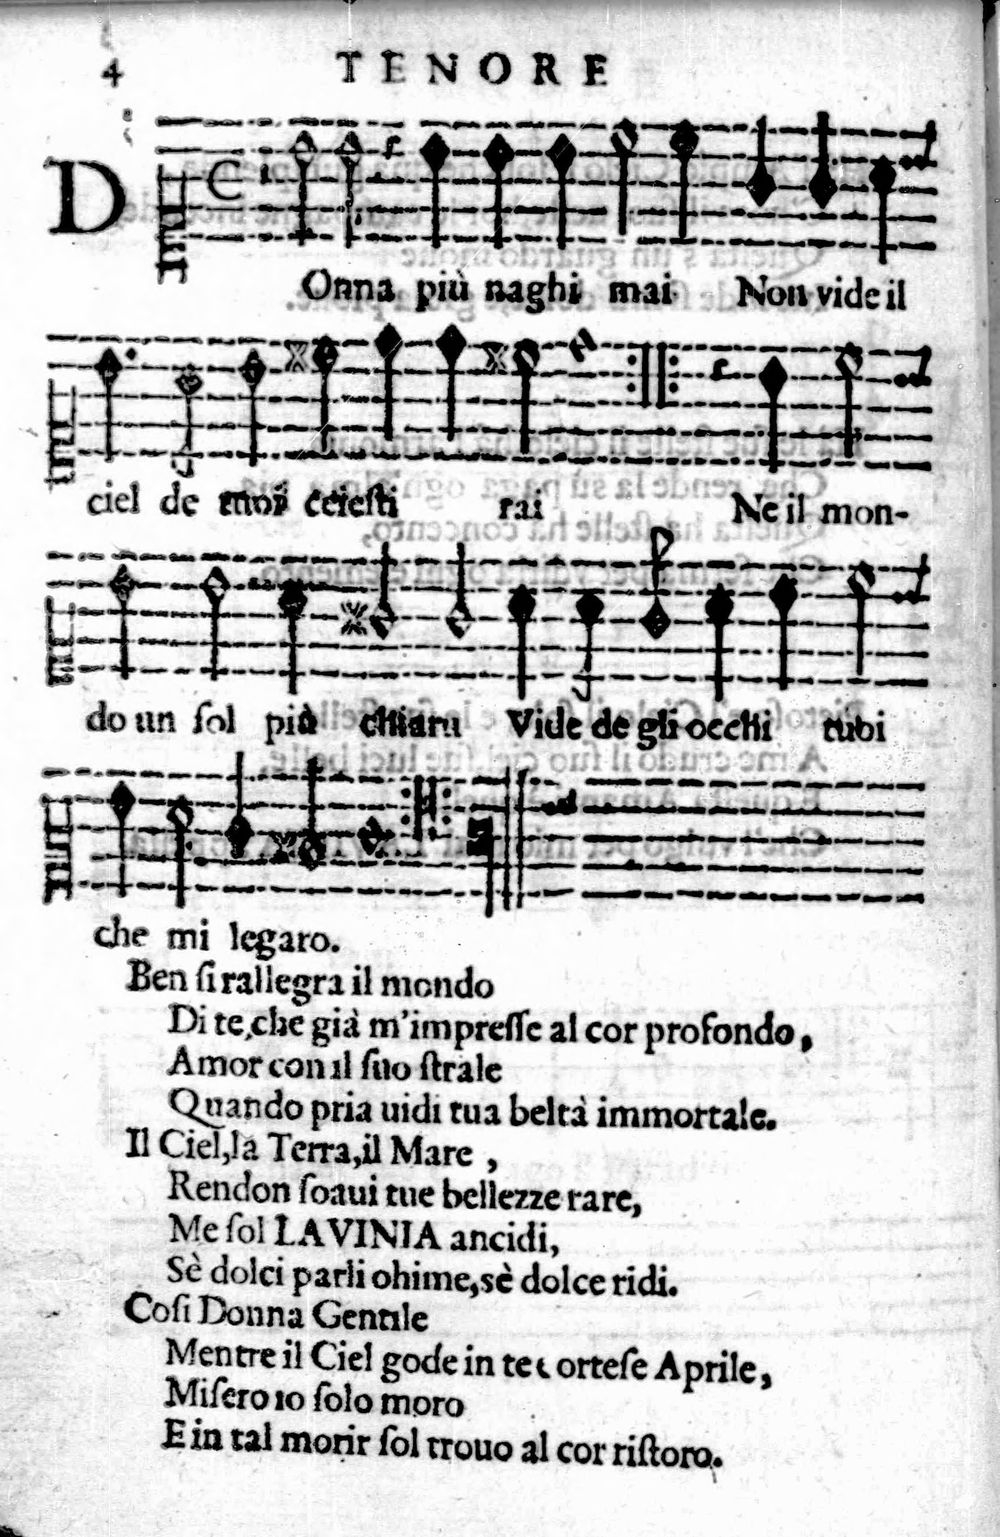 4
TENORE
DOnna più naghi mai Non vide il
ciel de tuoi celesti rai Ne il mon-
do un ſol più chiaru Vide de gli occhi tuoi
che mi legaro.
Ben ſi rallegra il mondo
Di te,che già m'impreſſe al cor profondo,
Amor con il ſuo ſtrale
Quando pria uidi tua beltà immortale.
Il Ciel,la Terra,il Mare ,
Rendon ſoaui tue bellezze rare,
Me ſol LAVINIA ancidi,
Sè dolci parli ohime,sè dolce ridi.
Coſi Donna Gentile
Mentre il Ciel gode in te corteſe Aprile,
Miſero io ſolo moro
E in tal morir ſol trouo al cor riſtoro.